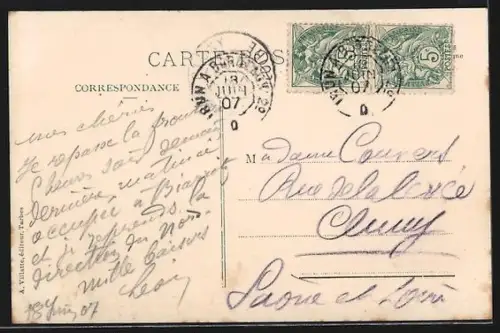 CARTE POS
CORRESPONDANCE
13
JUIN
07
IRUN A BORDEAUX
mes chéries
Je repasse la frontière
l'heure sans demain
dernière matinée
occuper à Biarritz
et je reprends la
direction du Nord
mille baisers
Léon
18 Juin 07
A. Villatte, éditeur, Tarbes
Madame Couvers
Rue de la Levée
Cluny
Saône et Loire